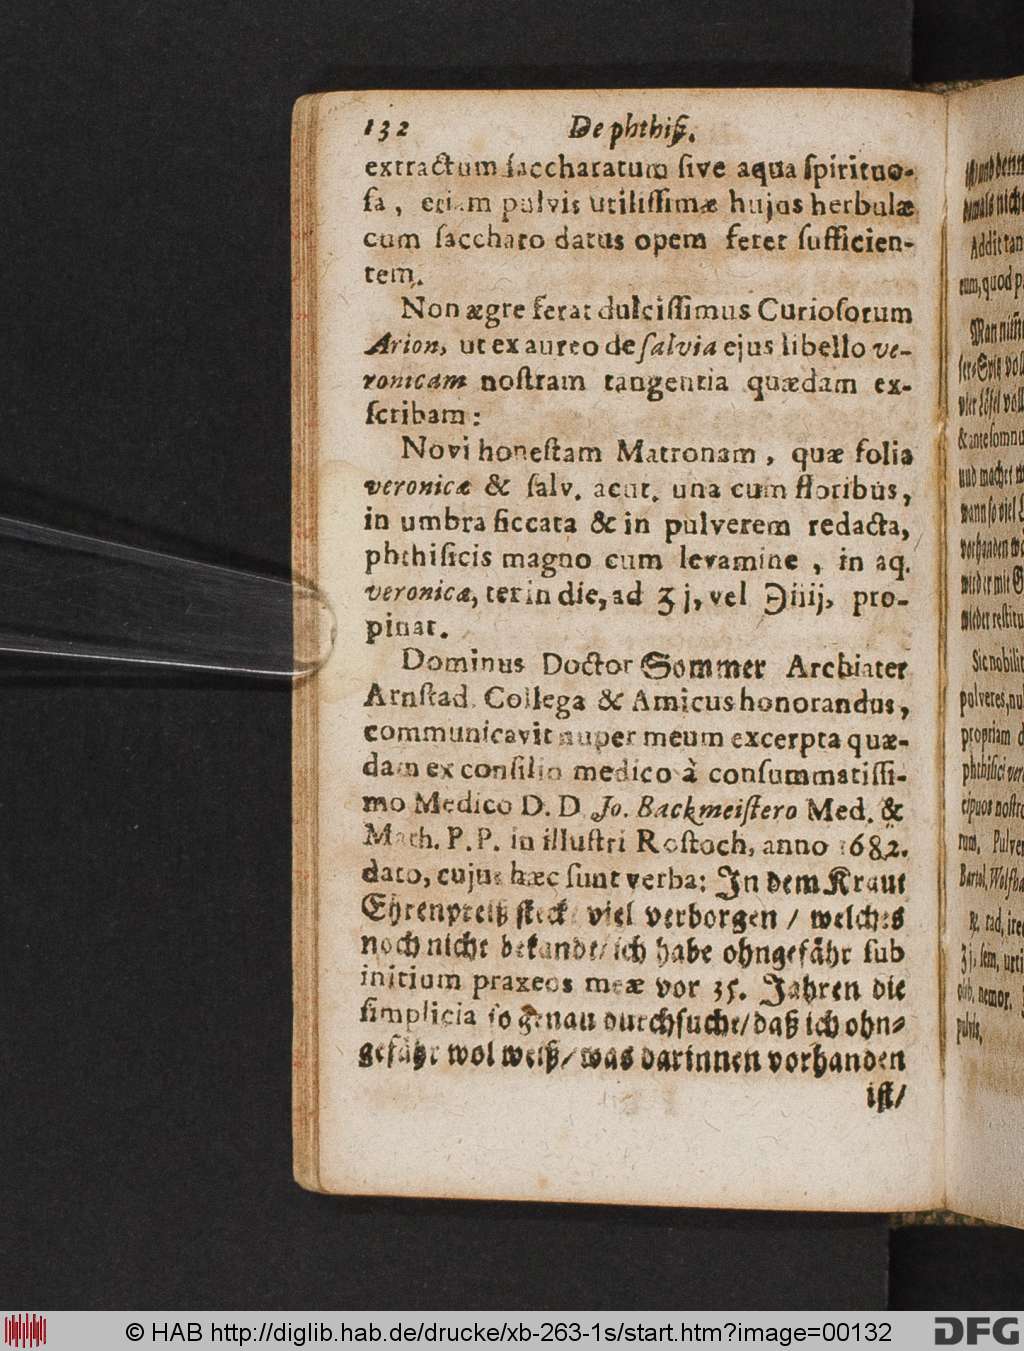 132 De phthiſ.
extractum ſaccharatum ſive aqua ſpirituo-
ſa, etiam pulvis utiliſſimæ hujus herbulæ
cum ſaccharo datus opem feret ſufficien-
tem.
Non ægre ferat dulciſſimus Curioſorum
Arion, ut ex aureo de ſalvia ejus libello ve-
ronicam noſtram tangentia quædam ex-
ſcribam:
Novi honeſtam Matronam, quæ folia
veronicæ & ſalv. acut. una cum floribus,
in umbra ſiccata & in pulverem redacta,
phthiſicis magno cum levamine, in aq.
veronicæ, ter in die, ad ʒ j, vel ℈iiij, pro-
pinat.
Dominus Doctor Sommer Archiater
Arnſtad. Collega & Amicus honorandus,
communicavit nuper meum excerpta quæ-
dam ex conſilio medico à conſummatiſſi-
mo Medico D. D. Jo. Backmeiſtero Med. &
Math. P. P. in illuſtri Roſtoch, anno 1682.
dato, cujus hæc ſunt verba: In dem Kraut
Ehrenpreiß ſteckt viel verborgen / welches
noch nicht bekandt / ich habe ohngefähr ſub
initium praxeos meæ vor 35. Jahren die
ſimplicia ſo genau durchſucht / daß ich ohn-
gefähr wol weiß / was darinnen vorhanden
iſt /
Addit tan
eum, quod p
& ante ſomnu
und machet
wann ſo viel
vorhanden
wieder mit
wieder reſtitu
Sic nobilit
pulveres, nul
propriam d
phthiſici ver
cipuos noſtro
rum. Pulver
Bartol. Wolfha
℞. rad. ire
ʒ j. ſem. urti
nemor.
pulvis.
© HAB http://diglib.hab.de/drucke/xb-263-1s/start.htm?image=00132 DFG